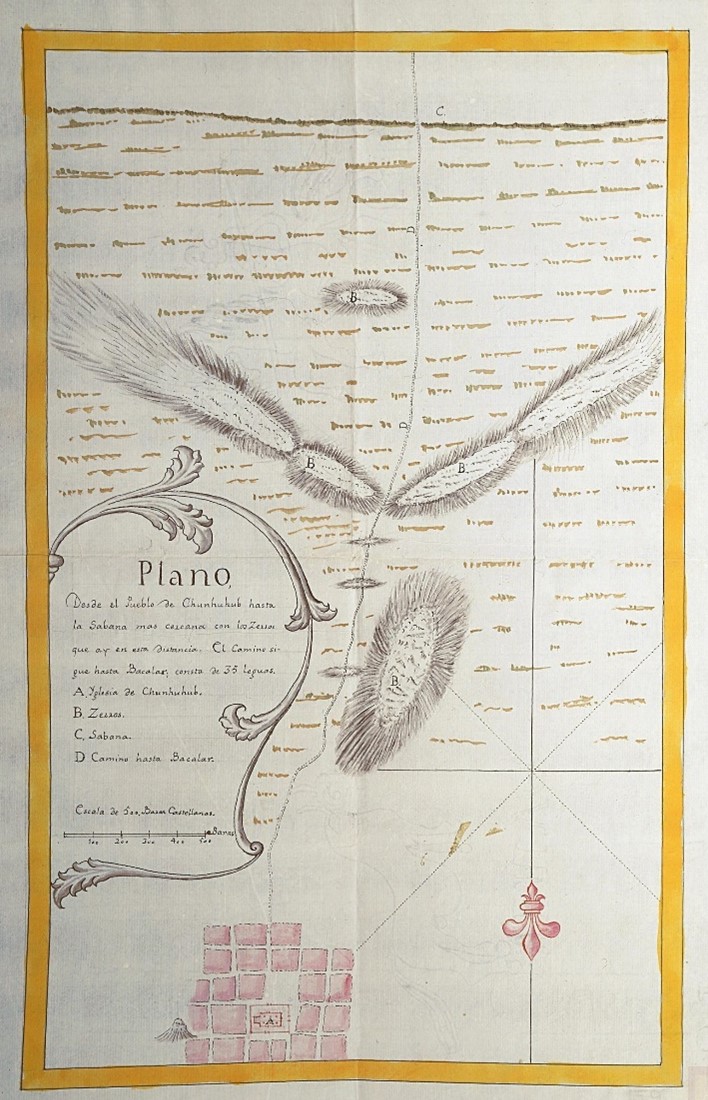 C.
D
B.
D
B
B.
Plano,
Desde el Pueblo de Chunhuhub hasta
la Sabana mas cercana con los Zerros
que ay en esta distancia. El Camino si-
gue hasta Bacalar, consta de 35 leguas.
A, Yglesia de Chunhuhub.
B, Zerros.
C, Sabana.
D Camino hasta Bacalar.
B.
Escala de 500, Baras Castellanas.
Baras
100 200 300 400 500
A.